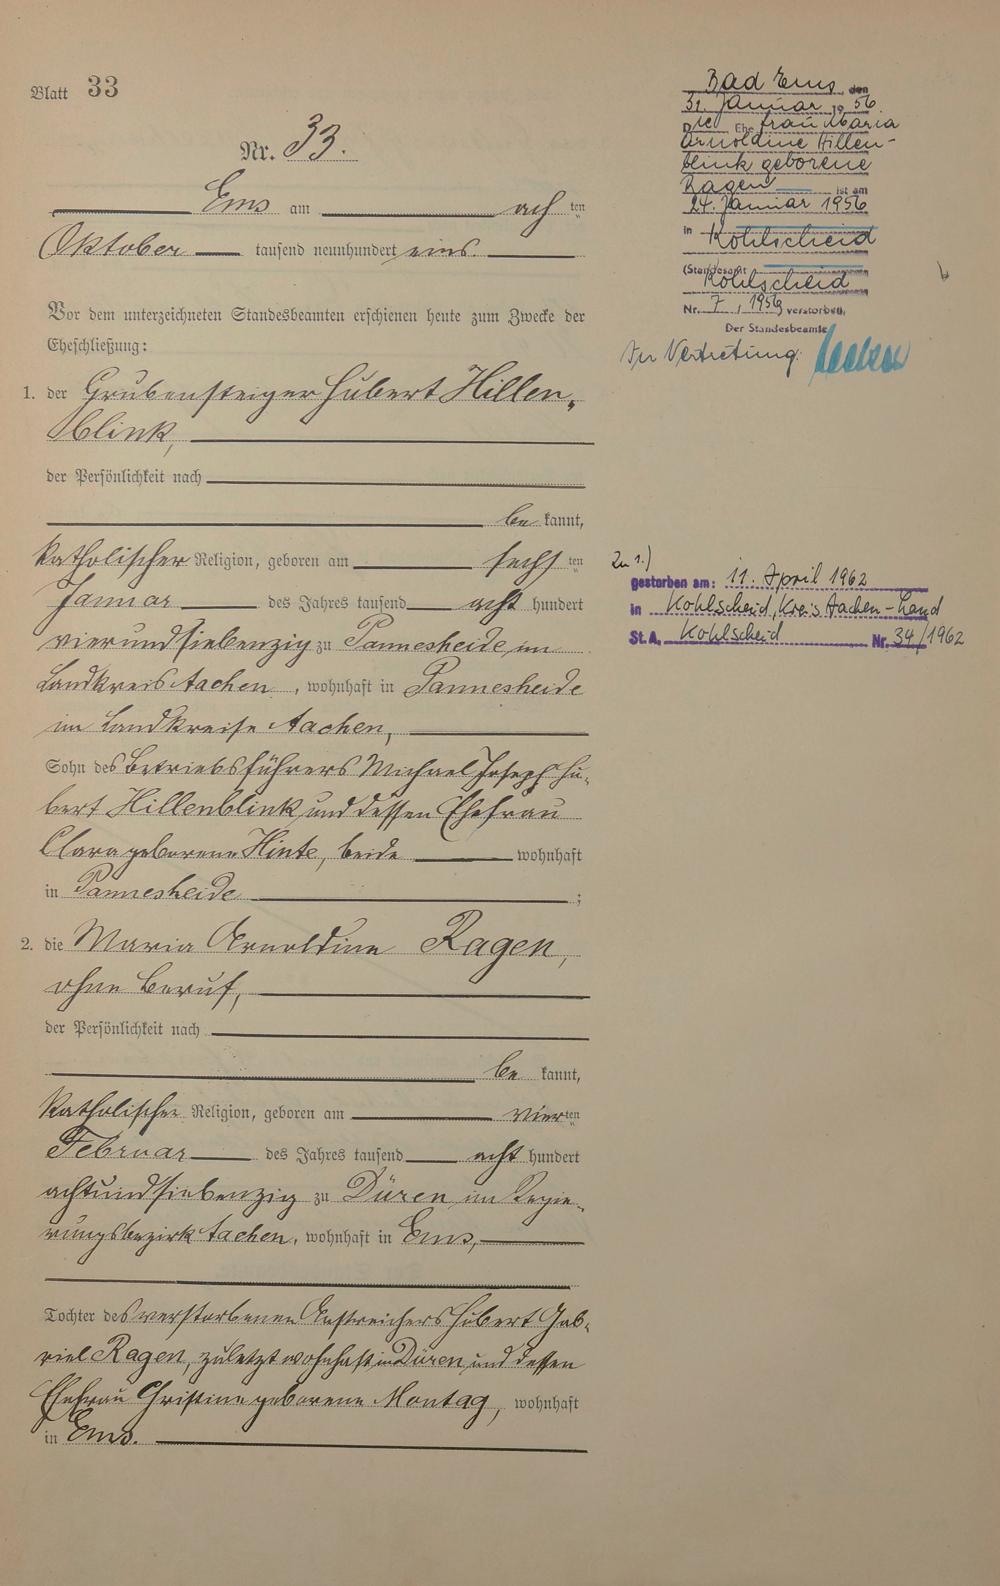 Blatt 33
Nr. 33.
Ems am ach ten
Oktober tausend neunhundert eins.
Vor dem unterzeichneten Standesbeamten erschienen heute zum Zwecke der
Eheschließung:
1. der Grubensteiger Hubert Hillen-
blink,
der Persönlichkeit nach
be kannt,
katholischer Religion, geboren am sechs ten
Januar des Jahres tausend acht hundert
vierundsiebenzig zu Pannesheide im
Landkreis Aachen, wohnhaft in Pannesheide
im Landkreise Aachen,
Sohn des Betriebsführers Michael Joseph Hu-
bert Hillenblink und dessen Ehefrau
Clara geborene Hinte, beide wohnhaft
in Pannesheide ;
2. die Maria Arnoldine Ragen,
ohne Beruf,
der Persönlichkeit nach
be kannt,
katholischer Religion, geboren am vier ten
Februar des Jahres tausend acht hundert
achtundsiebenzig zu Düren im Regie-
rungsbezirk Aachen, wohnhaft in Ems,
Tochter des verstorbenen Anstreichers Hubert Gab-
riel Ragen, zuletzt wohnhaft in Düren und dessen
Ehefrau Christine geborene Montag, wohnhaft
in Ems.
Bad Ems, den
31. Januar 1956.
Die Ehefrau Maria
Arnoldine Hillen-
blink geborene
Ragen ist am
24. Januar 1956
in Kohlscheid
(Standesamt
Kohlscheid
Nr. 7, 1956) verstorben.
Der Standesbeamte
In Vertretung:
Zu 1.)
gestorben am: 11. April 1962
in Kohlscheid, Kreis Aachen-Land
St.A. Kohlscheid Nr. 34/1962